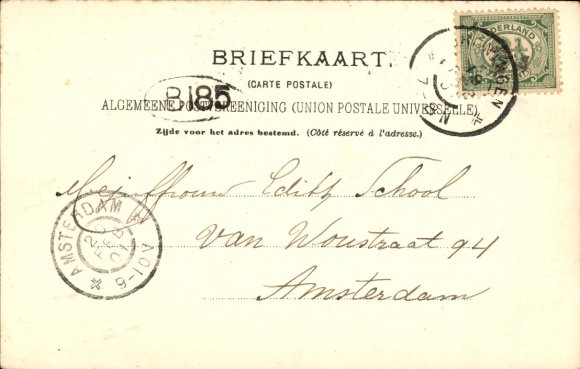 BRIEFKAART.
(CARTE POSTALE)
B185
ALGEMEENE POSTVEREENIGING (UNION POSTALE UNIVERSELLE)
Zijde voor het adres bestemd. (Côté réservé à l'adresse.)
NEDERLAND
Mejuffrouw Edith School
van Woustraat 94
Amsterdam
AMSTERDAM
FEB
9-10V